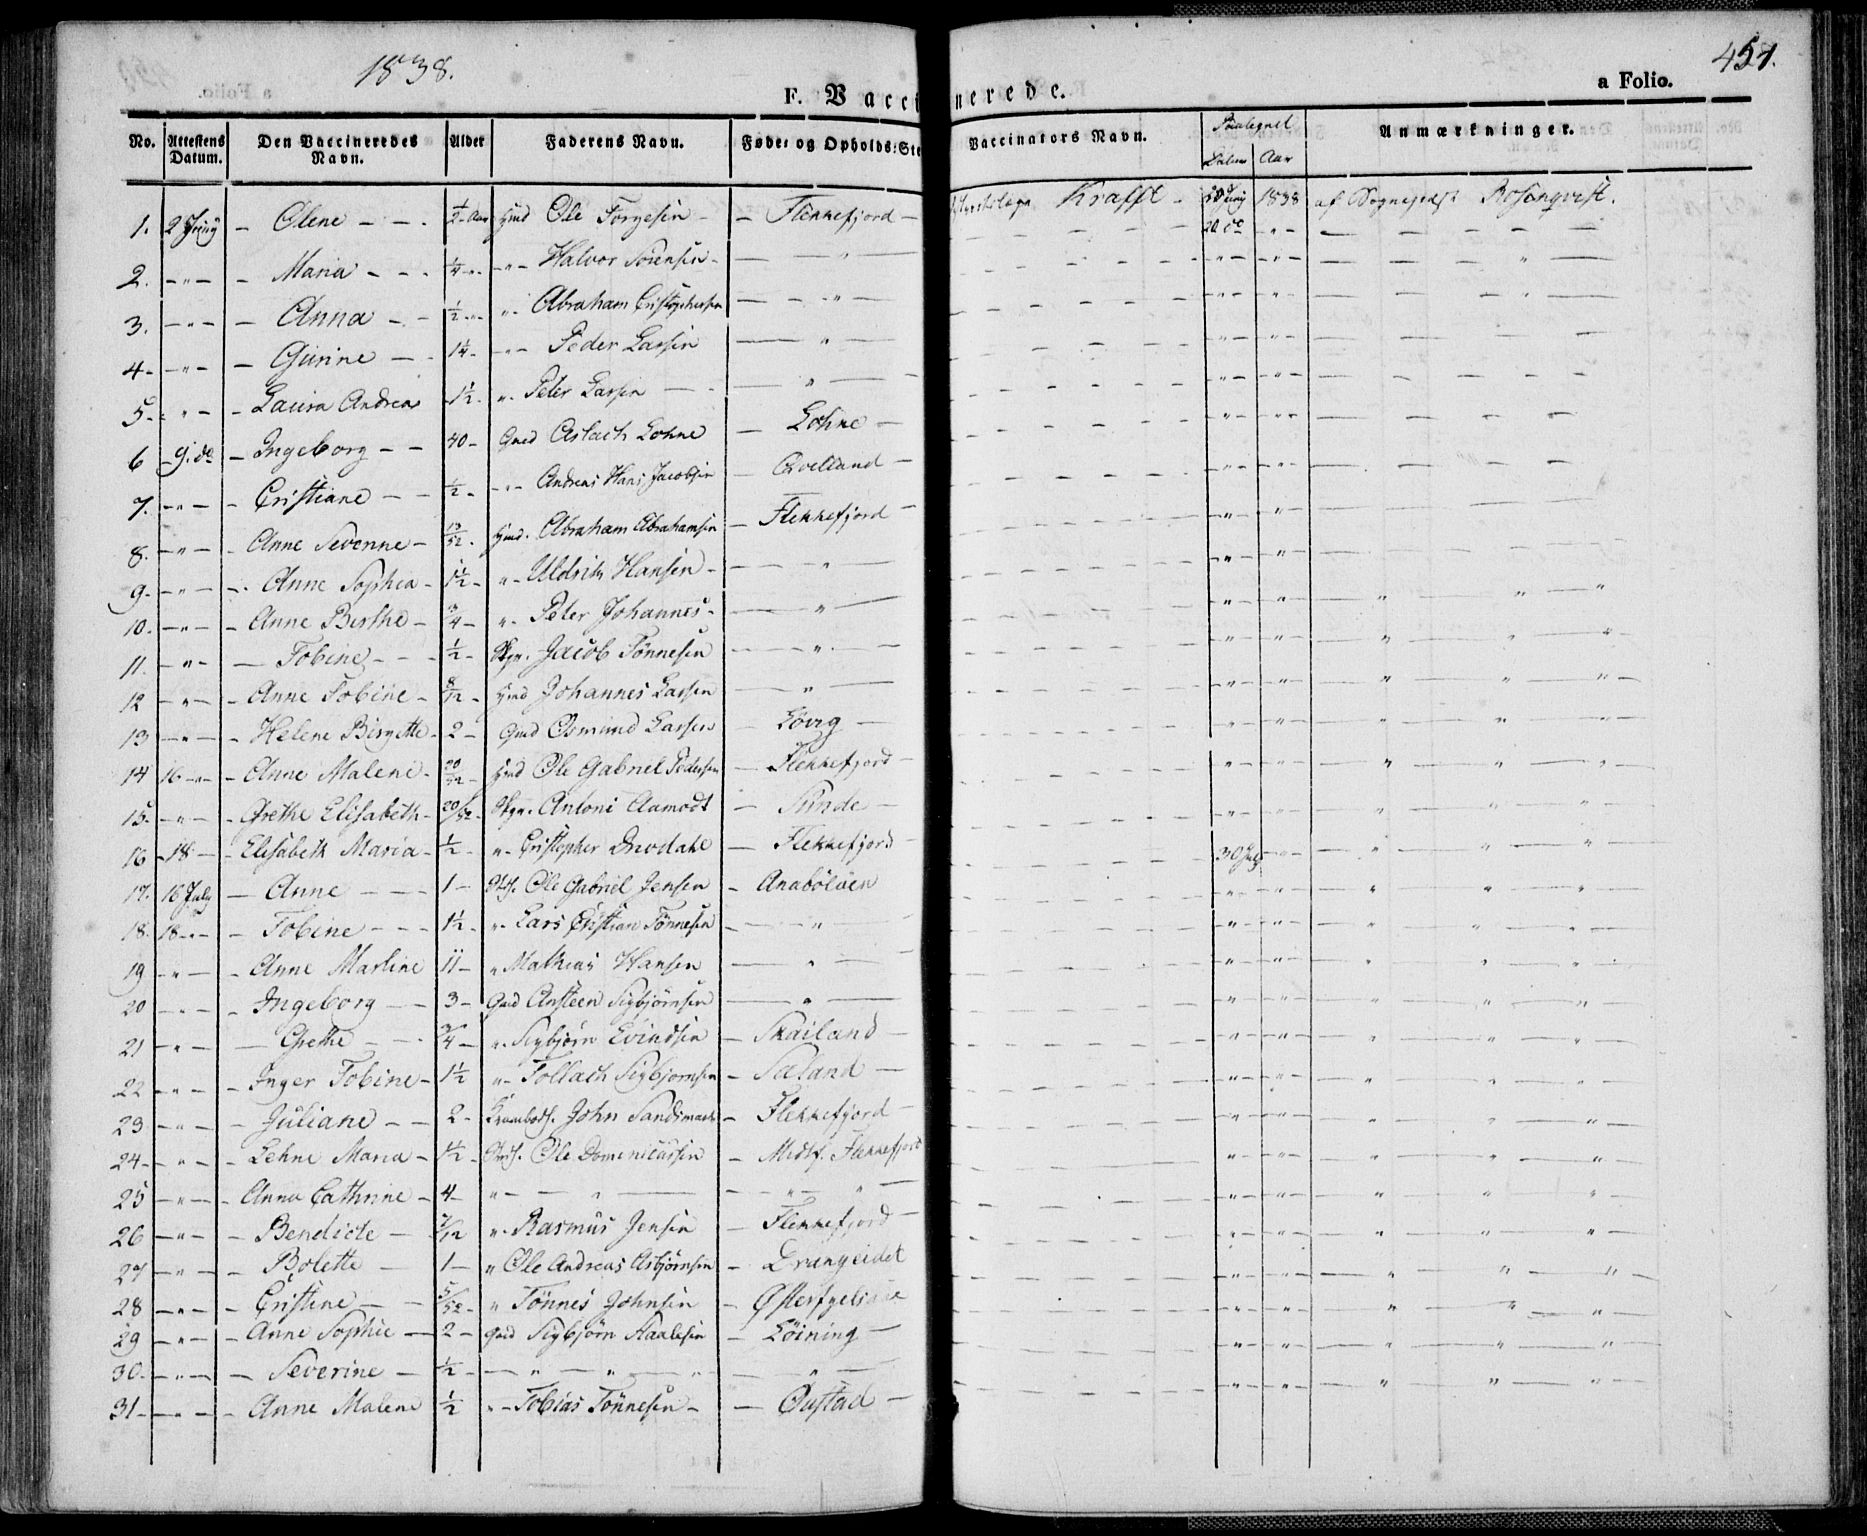 1838.
451.
F. Vaccinerede.
a Folio.
No. Attestens Datum. Den Vaccineredes Navn. Alder Faderens Navn. Føde: og Opholds:Ste Vaccinators Navn. Anmærkninger.
Datum Aar
1. 2 Juny - Olene - - - 1/2 Aar Hmd Ole Torgesen - - Flekkefjord - Krafft - 1838 af Sognepræst Rosenqvist.
2. - " - - Maria - - - 1/4 - " - Halvor Sørensen - - " - 20 do - " -
3. - " - - Anna - - 1/2 - " - Abraham Cristophersen - " -
4 - - " - - Gurine - - 1 1/4 - - " - Peder Larsen - " -
5 - - " - - Laura Andrea 1 1/2 - " - Peter Larsen - " -
6 - 9. do - Ingeborg - - 40 - Gmd Aslach Lohne - Lohne -
7. - " - - Cristiane - - 1/2 - - " - Andreas Hans Jacobsen -
8. - " - - Anne Severine - Hmd. Abraham Abrahamsen - Flekkefjord -
9 - - " - - Anne Sophia - 1 1/2 - " - Uldrik Hansen - - " -
10. - " - - Anne Birthe - 3/4 - " - Peter Johannes - - " -
11. - " - - Tobine - - - 1/2 - Jacob Tønnesen - " -
12 - " - - Anne Tobine - 8/12 - Hmd Johannes Larsen - " -
13 - " - - Helene Birgitte - 2 - Gmd Osmund Larsen - Løvig -
14 16 - " - - Anne Malene - 20/52 - Hmd Ole Gabriel Pedersen - Flekkefjord -
15. - " - - Grethe Elisabeth - 20/52 - Antoni Aamodt - Sunde -
16 - 18 - - Elisabeth Maria - 1/2 - " - Cristopher - Flekkefjord - 30 July - " -
17. 16 July - Anne - - - 1 - Ole Gabriel Jensen - Anabøløen
18. 18 - " - - Tobine - - - 1 1/2 - " - Lars Cristian Tønnesen - " -
19 - " - - Anne Martine 11 - " Mathias Hansen - " -
20 - " - - Ingeborg - - 3 - Gmd Ansteen Sigbjørnsen - " -
21 - " - - Grethe - - 3/4 - " - Sigbjørn Eivindsen - Skailand -
22 - " - - Inger Tobine - 1 1/2 " - Tollach Sigbjørnsen - Sæland -
23 - " - - Juliane - - 2 - John - Flekkefjord -
24 - - " - - Lehne Maria - 1 1/2 - Ole Domenicussen - Flekkefjord
25 - " - - Anna Cathrine - 4 - " - " - - " - " -
26 - " - - Bendicte - 7/12 " - Rasmus Jensen - Flekkefjord -
27 - " - - Bolette - 1 - " Ole Andreas Asbjørnsen - Drangeidet
28 - " - - Cristine - - 5/52 - " Tønnes Johnsen -
29 - " - - Anne Sophie - 2 - Gmd Sigbjørn - Løining -
30 - - " - - Severine - 1/2 - - " - " - " - " -
31 - - " - - Anne Malene 1/2 " - Tobias Tønnesen - - Oustad -